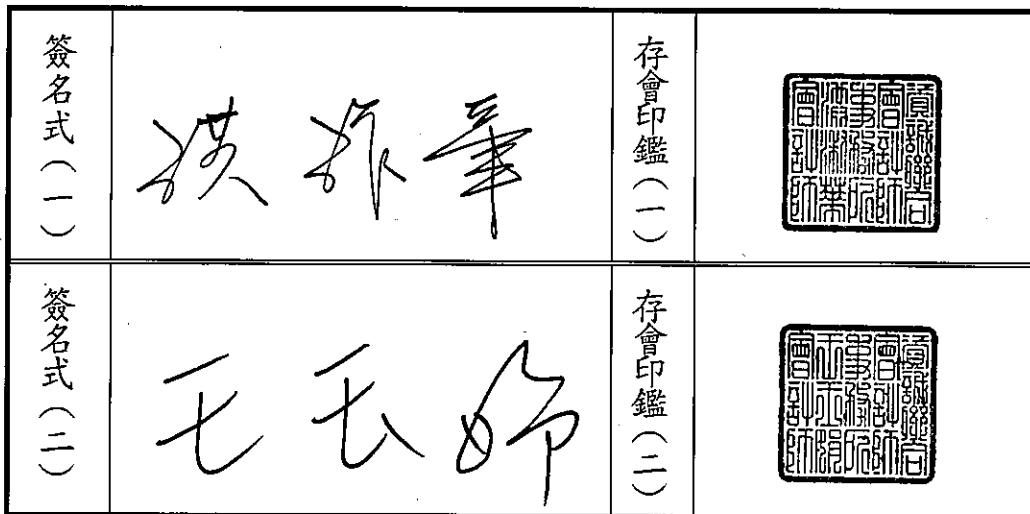 簽名式(一)
洪淑華
存會印鑑(一)
資誠聯合
會計師
事務所
洪淑華
會計師
簽名式(二)
王玉娟
存會印鑑(二)
資誠聯合
會計師
事務所
王玉娟
會計師